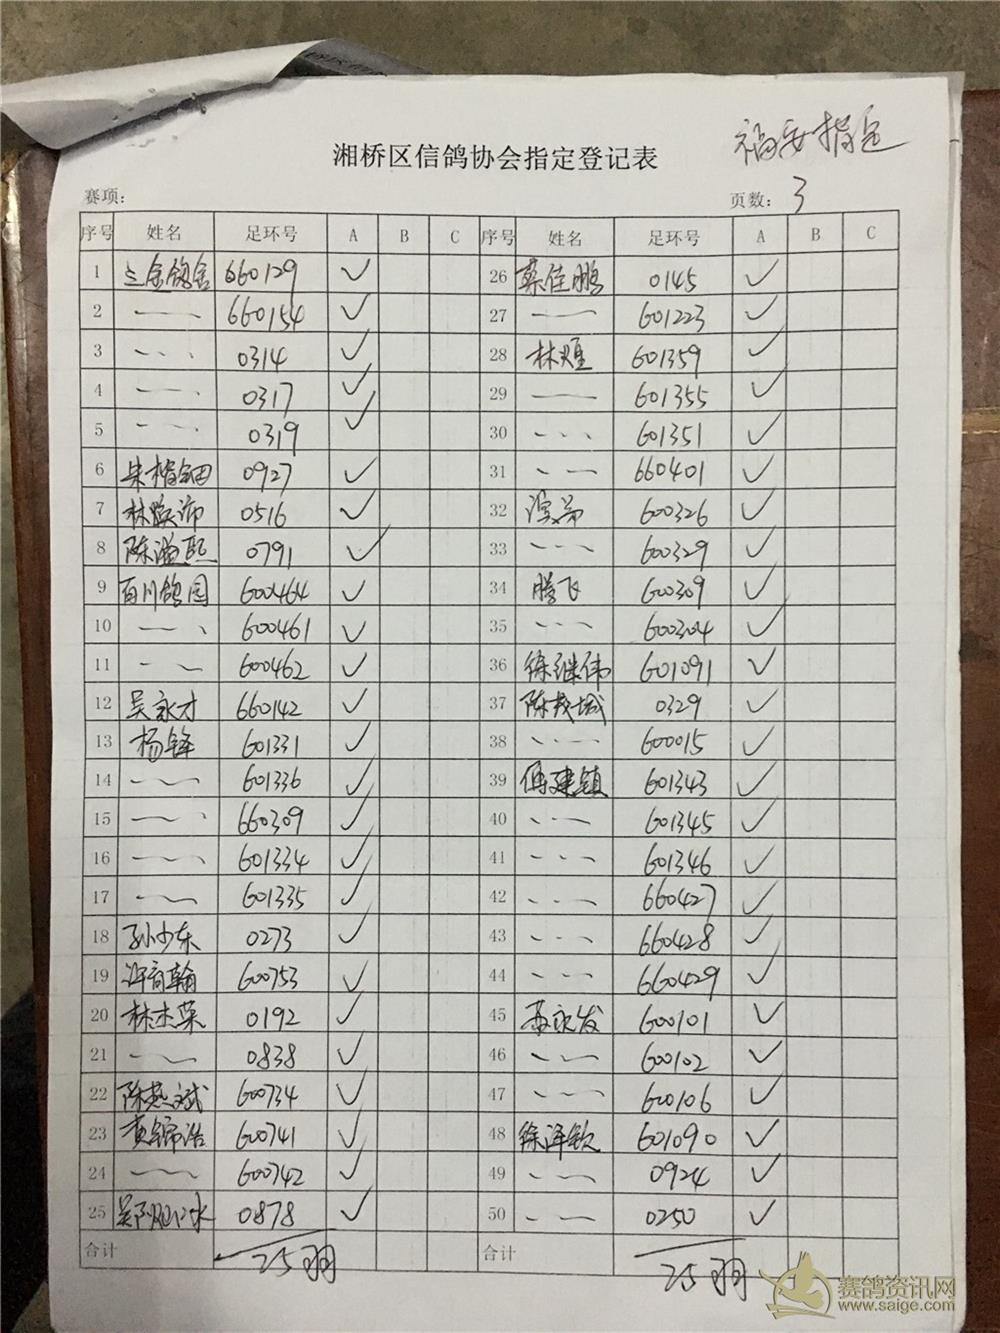 福安指定
湘桥区信鸽协会指定登记表
赛项: 页数: 3
序号 姓名 足环号 A B C 序号 姓名 足环号 A B C
1 三金鸽舍 660129 ✓ 26 蔡佳鹏 0145 ✓
2 660154 ✓ 27 601223 ✓
3 0314 ✓ 28 林煌 601359 ✓
4 0317 ✓ 29 601355 ✓
5 0319 ✓ 30 601351 ✓
6 朱楷钿 0927 ✓ 31 660401 ✓
7 林 0516 ✓ 32 600326 ✓
8 陈溢熙 0791 ✓ 33 600329 ✓
9 百川鸽园 600464 ✓ 34 腾飞 600309 ✓
10 600461 ✓ 35 600304 ✓
11 600462 ✓ 36 徐继伟 601091 ✓
12 吴永才 660142 ✓ 37 陈茂城 0329 ✓
13 杨锋 601331 ✓ 38 600015 ✓
14 601336 ✓ 39 傅建镇 601343 ✓
15 660309 ✓ 40 601345 ✓
16 601334 ✓ 41 601346 ✓
17 601335 ✓ 42 660427 ✓
18 孙少东 0273 ✓ 43 660428 ✓
19 许育翰 600753 ✓ 44 660429 ✓
20 林杰荣 0192 ✓ 45 苏永发 600101 ✓
21 0838 ✓ 46 600102 ✓
22 陈燕斌 600734 ✓ 47 600106 ✓
23 黄锦浩 600741 ✓ 48 徐泽钦 601090 ✓
24 600742 ✓ 49 0924 ✓
25 吴 0878 ✓ 50 0250 ✓
合计 25羽 合计 25羽
赛鸽资讯网
www.saige.com